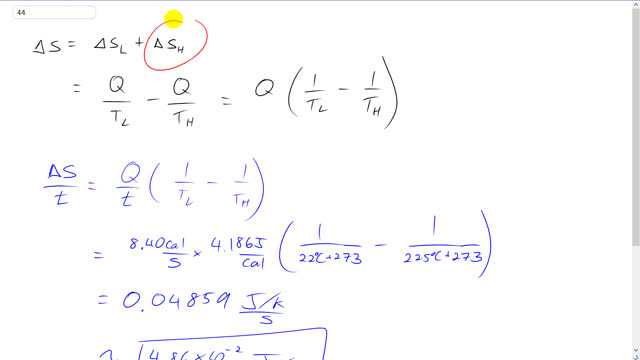 44
ΔS = ΔS_L + ΔS_H
= Q/T_L - Q/T_H = Q (1/T_L - 1/T_H)
ΔS/t = Q/t (1/T_L - 1/T_H)
= 8.40cal/s × 4.186J/cal (1/22°C+273 - 1/225°C+273)
= 0.04859 J/K/s
4.86 × 10⁻²